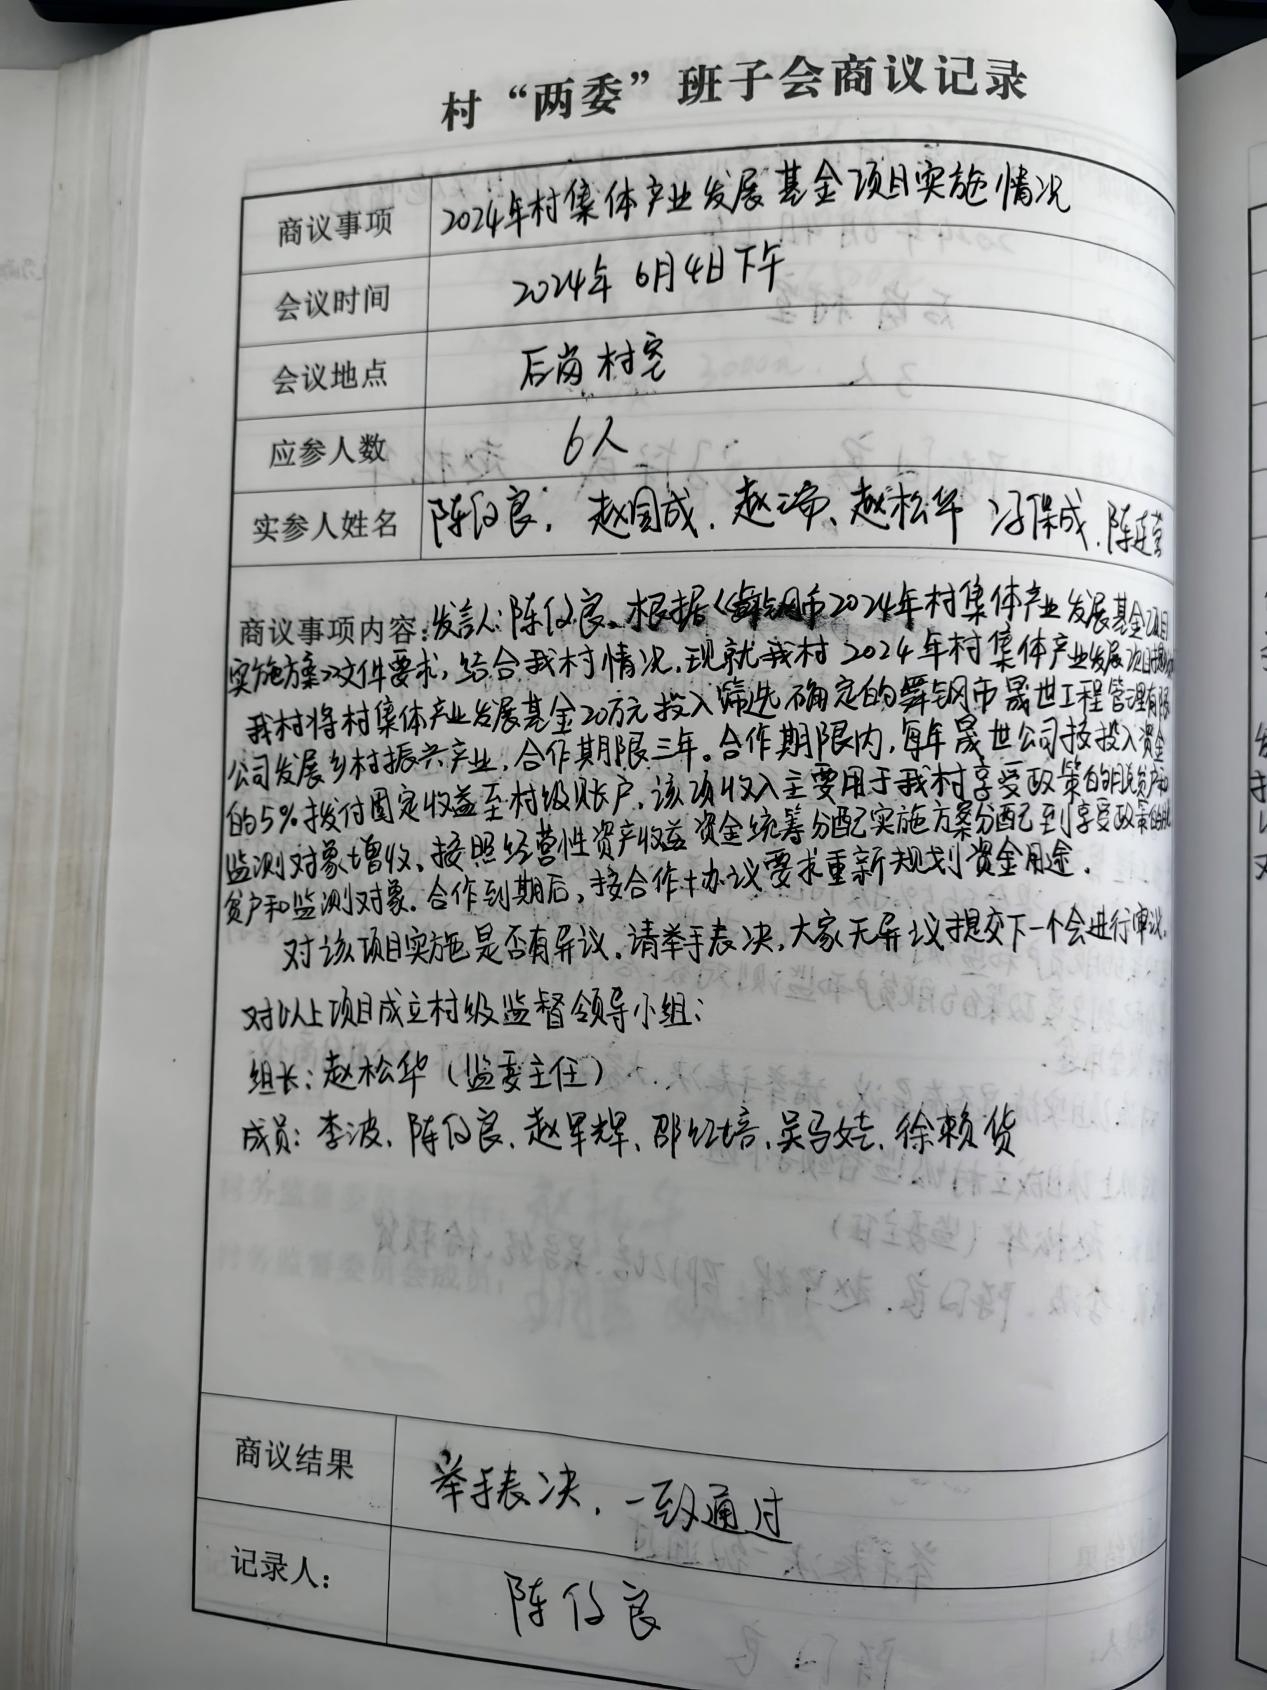 村“两委”班子会商议记录
商议事项 2024年村集体产业发展基金项目实施情况
会议时间 2024年6月4日下午
会议地点 后岗村室
应参人数 6人
实参人姓名 陈付良, 赵国成, 赵二帝、赵松华 冯保成, 陈连营
商议事项内容: 发言人: 陈付良、根据《舞钢市2024年村集体产业发展基金项目
实施方案》文件要求, 结合我村情况, 现就我村2024年村集体产业发展项目
我村将村集体产业发展基金20万元投入筛选确定的舞钢市晟世工程管理有限
公司发展乡村振兴产业, 合作期限三年。合作期限内, 每年晟世公司按投入资金
的5%拨付固定收益至村级账户, 该项收入主要用于我村享受政策的脱贫户和
监测对象增收、按照经营性资产收益资金统筹分配实施方案分配到享受政策的脱
贫户和监测对象. 合作到期后, 按合作协议要求重新规划资金用途.
对该项目实施是否有异议, 请举手表决, 大家无异议提交下一个会进行审议.
对以上项目成立村级监督领导小组:
组长: 赵松华 (监委主任)
成员: 李波、陈付良、赵军辉、邵红培、吴马娃、徐赖货
商议结果 举手表决, 一致通过
记录人: 陈付良